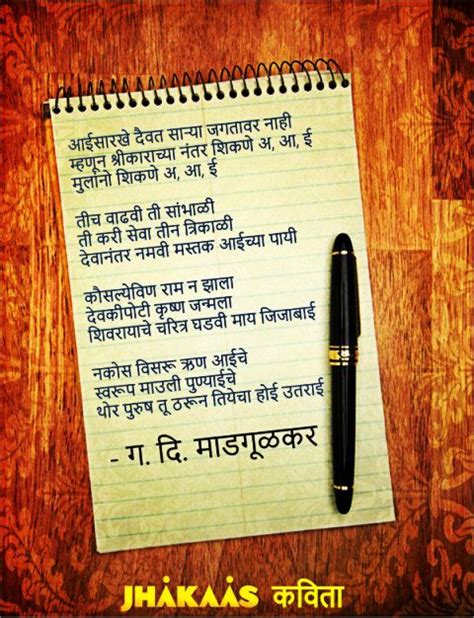 आईसारखे दैवत साऱ्या जगतावर नाही
म्हणून श्रीकाराच्या नंतर शिकणे अ, आ, ई
मुलांनो शिकणे अ, आ, ई
तीच वाढवी ती सांभाळी
ती करी सेवा तीन त्रिकाळी
देवानंतर नमवी मस्तक आईच्या पायी
कौसल्येविण राम न झाला
देवकीपोटी कृष्ण जन्मला
शिवरायाचे चरित्र घडवी माय जिजाबाई
नकोस विसरू ऋण आईचे
स्वरूप माउली पुण्याईचे
थोर पुरुष तू ठरून तियेचा होई उतराई
- ग. दि. माडगूळकर
JHAKAAS कविता